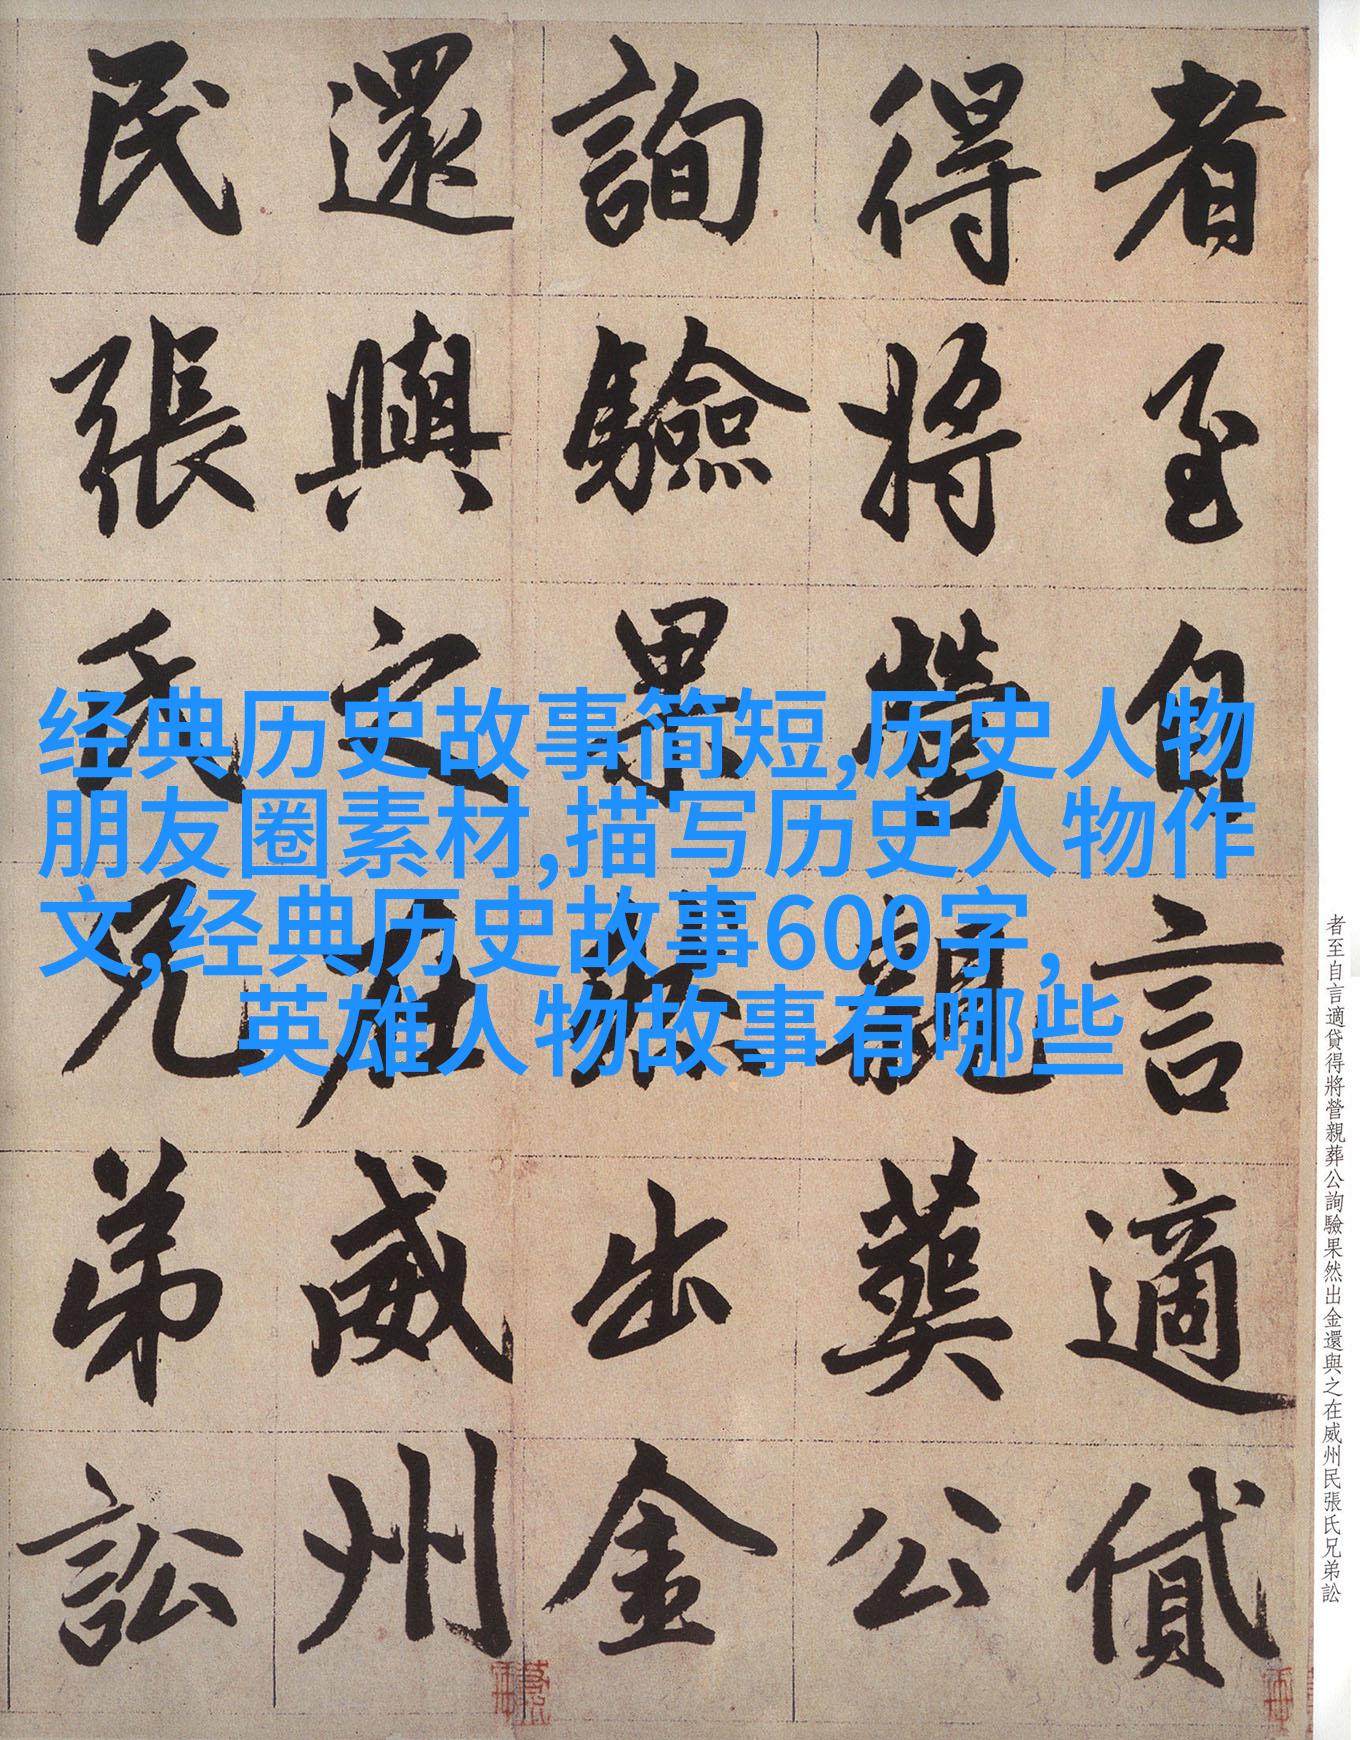 者至自言適貸
得將營親葬公
詢驗果然出金
還與之在威州
民張氏兄弟訟
经典历史故事简短,历史人物
朋友圈素材,描写历史人物作
文,经典历史故事600字,
英雄人物故事有哪些
者至自言適貸得將營親葬公詢驗果然出金還與之在威州民張氏兄弟訟